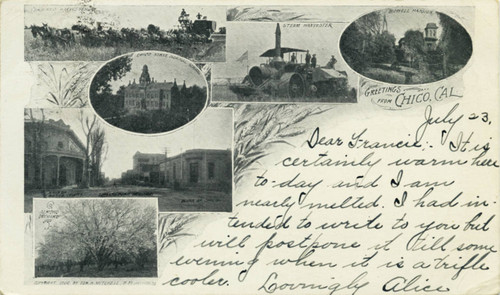 STEAM HARVESTER
BIDWELL MANSION
GREETINGS
FROM CHICO, CAL
July 23,
Dear Francis:- It is
certainly warm here
to-day and I am
nearly melted. I had in-
tended to write to you but
will postpone it till some
evening when it is a trifle
cooler. Lovingly Alice